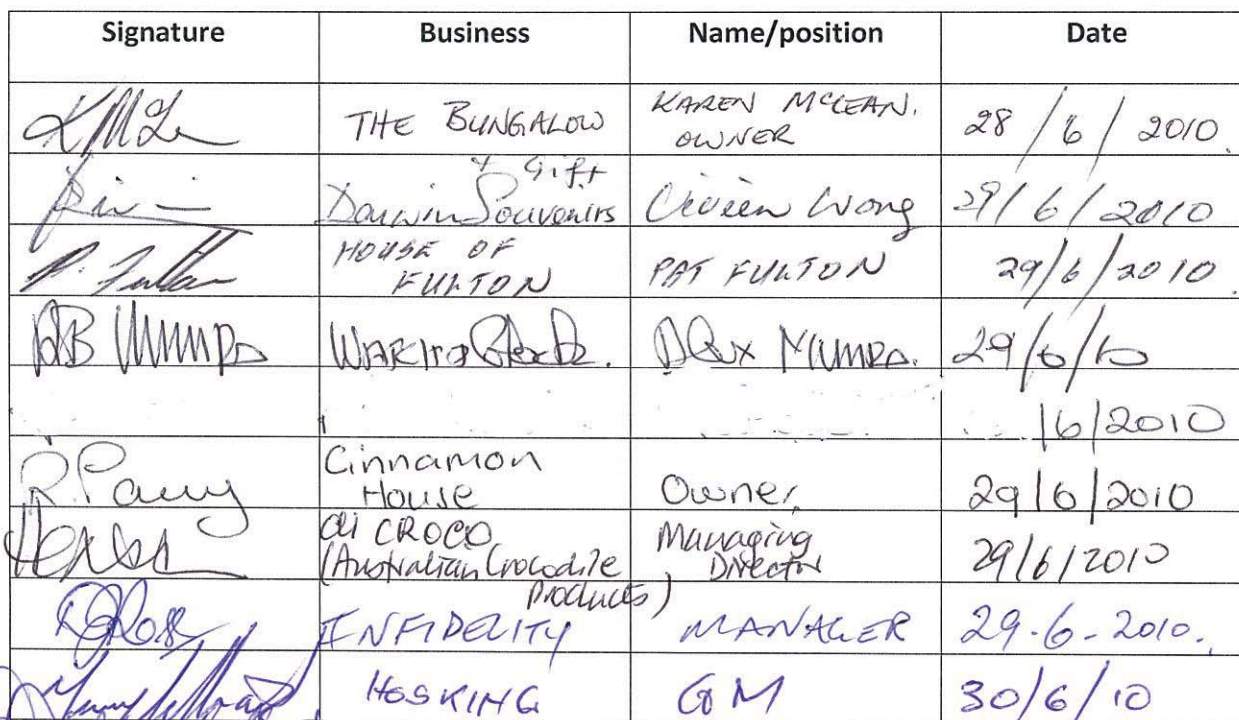 Signature Business Name/position Date
THE BUNGALOW KAREN MCLEAN. OWNER 28/6/2010.
Darwin Souvenirs + Gift Vivien Wong 29/6/2010
P. Fulton HOUSE OF FULTON PAT FULTON 29/6/2010.
DB Munro Munro. 29/6/10
/6/2010
R Parry Cinnamon House Owner, 29/6/2010
di CROCO (Australian Crocodile Products) Managing Director 29/6/2010
Ross INFIDELITY MANAGER 29-6-2010.
HOSKING GM 30/6/10